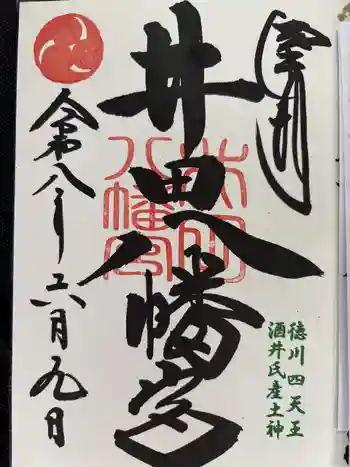 奉拝
井田八幡宮
徳川四天王
酒井氏産土神
令和八年六月九日